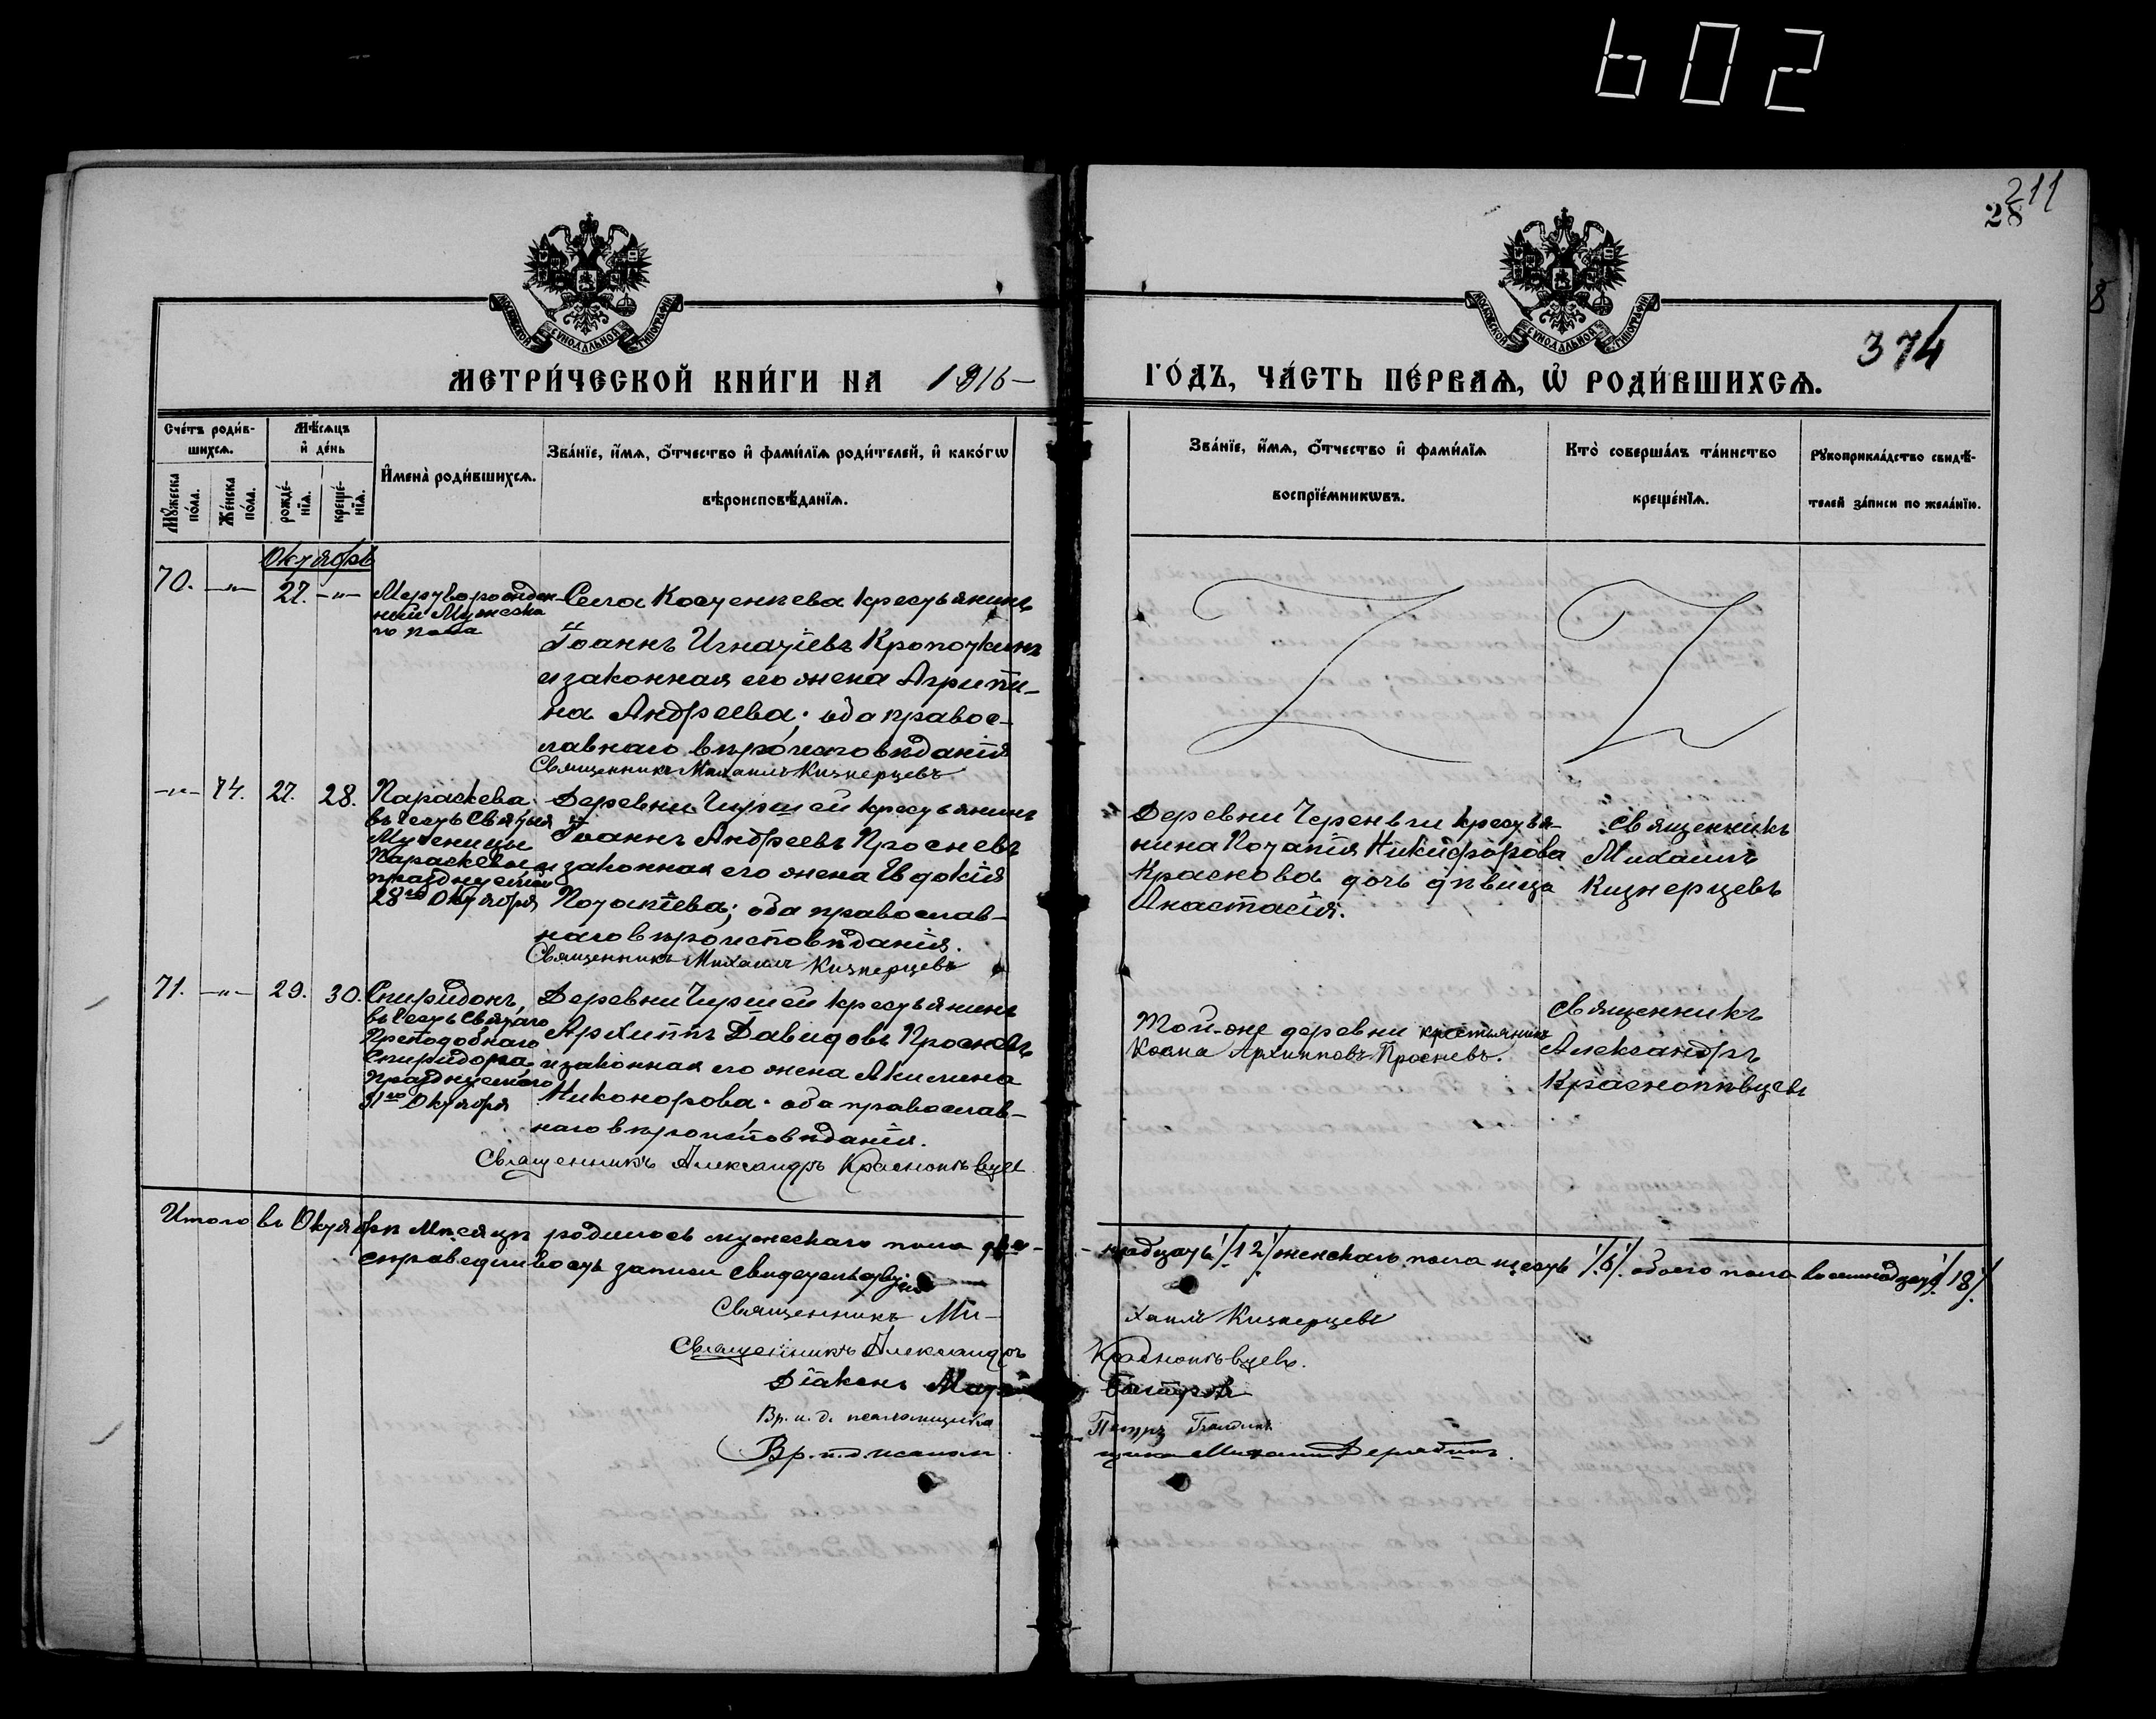 602
211
28
8
МОСКОВСКОЙ СѴНОДАЛЬНОЙ ТИПОГРАФІИ
МОСКОВСКОЙ СѴНОДАЛЬНОЙ ТИПОГРАФІИ
374
МЕТРИ́ЧЕСКОЙ КНИ́ГИ НА 1916 –
ГО́ДЪ, ЧА́СТЬ ПЕ́РВАѦ, Ѡ҆ РОДИ́ВШИХСѦ.
Сче́тъ роди́в-
шихсѧ.
Мꙋ́жеска по́ла.
Же́нска по́ла.
Мѣ́сѧцъ
и҆ де́нь
рожде́-нїѧ.
креще́-нїѧ.
И҆мена̀ роди́вшихсѧ.
Зва́нїе, и҆́мѧ, ѻ҆́тчество и҆ фами́лїѧ роди́телей, и҆ како́гѡ
вѣроисповѣ́данїѧ.
Зва́нїе, и҆́мѧ, ѻ҆́тчество и҆ фами́лїѧ
воспрїе́мникѡвъ.
Кто̀ соверша́лъ та́инство
креще́нїѧ.
Рꙋкоприкла́дство свидѣ́-
телей за́писи по жела́нїю.
Октябрь
70. –"– 27. –"– Мертворожден-
ный Мужеска-
го пола
Села Костенеева крестьянинъ
Іоаннъ Игнатіевъ Кропоткинъ
и законная его жена Агрипи-
на Андреева; оба правос-
лавнаго вѣроисповѣданія
Священникъ Михаилъ Кизнерцевъ
–"– 74. 27. 28. Параскева
въ честь Святыя
Мученицы
Параскевы
празднуемой
28го Октября
Деревни Чиршей крестьянинъ
Іоаннъ Андреевъ Просневъ
и законная его жена Евдокія
Потапіева; оба православ-
наго вѣроисповѣданія.
Священникъ Михаилъ Кизнерцевъ
Деревни Череньги крестья-
нина Потапія Никифорова
Краснова дочь дѣвица
Анастасія.
Священникъ
Михаилъ
Кизнерцевъ
71. –"– 29. 30. Спиридонъ,
въ честь Святаго
Преподобнаго
Спиридона,
празднуемаго
31го Октября
Деревни Чиршей крестьянинъ
Архиппъ Давидовъ Просневъ
и законная его жена Акилина
Никонорова; оба православ-
наго вѣроисповѣданія.
Священникъ Александръ Краснопѣвцевъ
Той-же деревни крестьянинъ
Косма Архипповъ Просневъ.
Священникъ
Александръ
Краснопѣвцевъ
Итого въ Октябрѣ Мѣсяцѣ родилось мужескаго пола две-
надцать /12/ женскаго пола шесть /6/. обоего пола восемнадцать /18/.
справедливость записи свидетельствуемъ
Священникъ Ми-
хаилъ Кизнерцевъ
Священникъ Александръ
Краснопѣвцевъ.
Діаконъ
Вр. и. д. псаломщика
Петръ
Вр. и. д. псалом-
щика Михаилъ Дерябинъ.